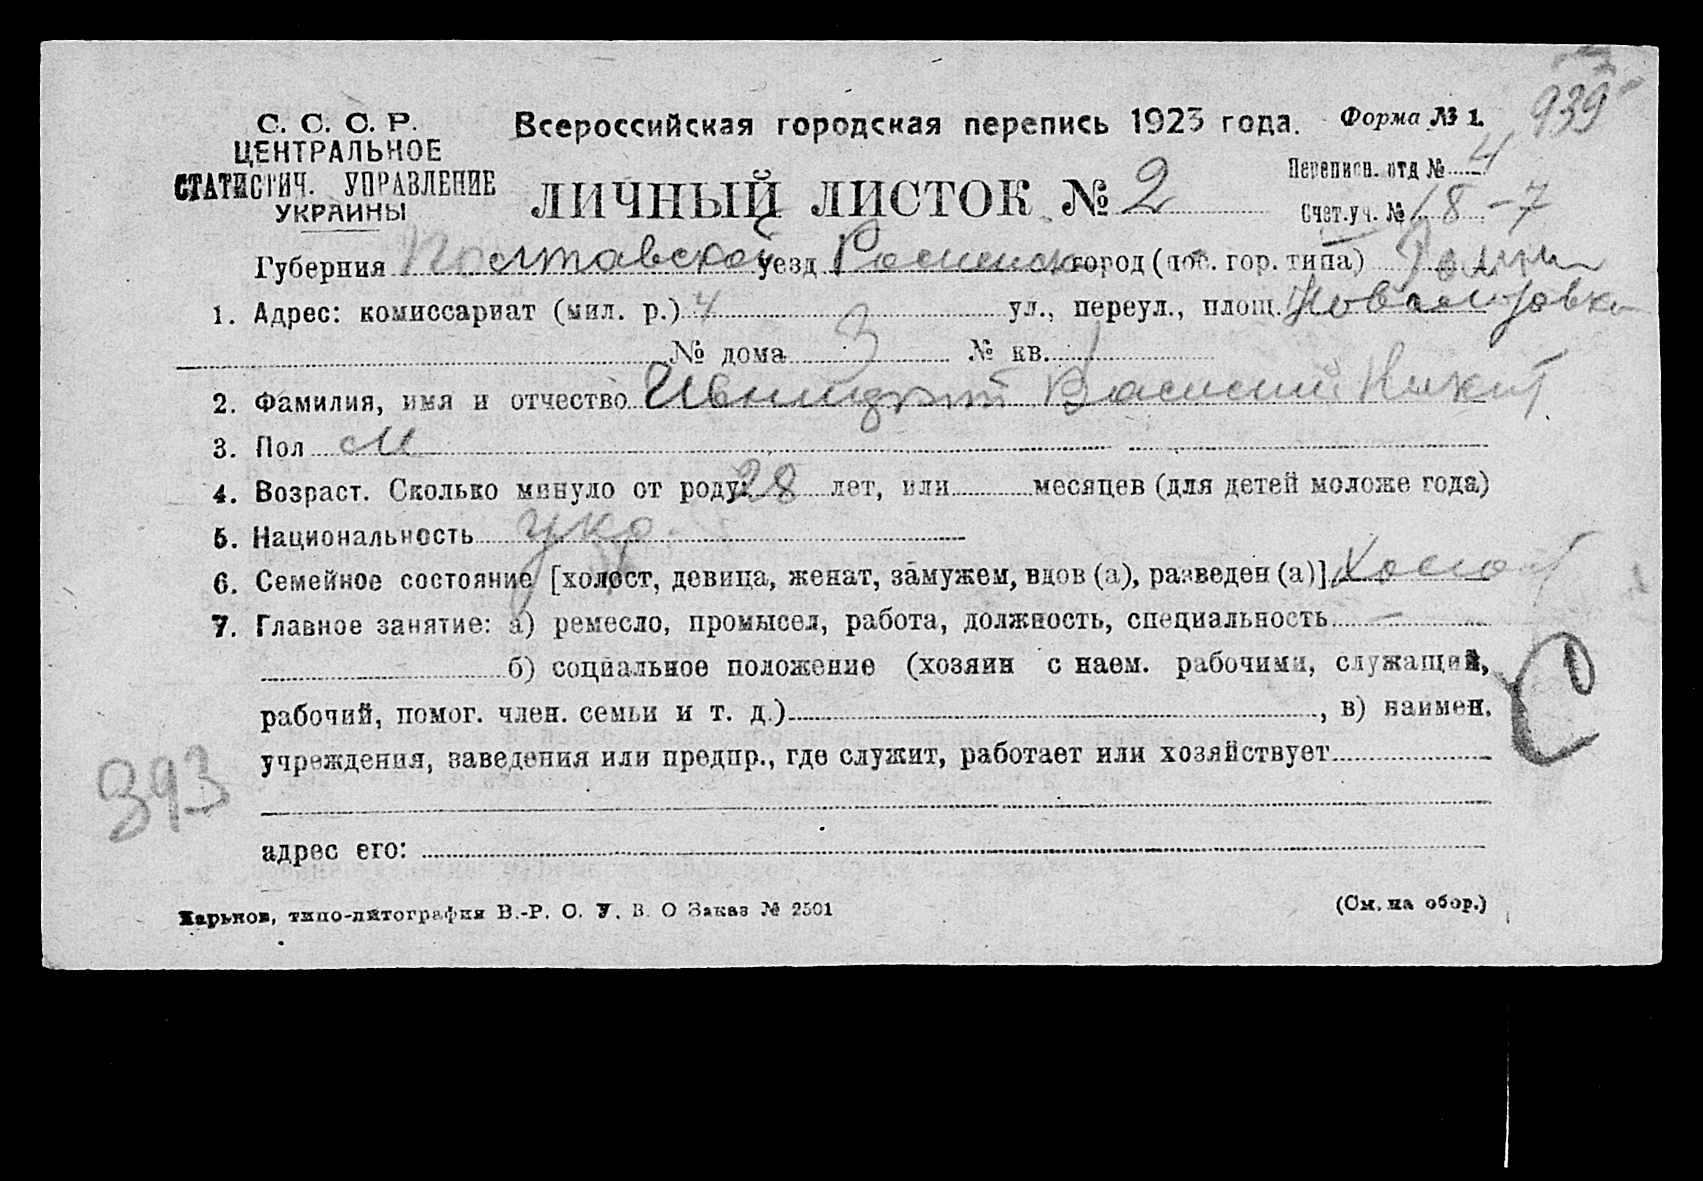 939
С. С. С. Р.
ЦЕНТРАЛЬНОЕ
СТАТИСТИЧ. УПРАВЛЕНИЕ
УКРАИНЫ
Всероссийская городская перепись 1923 года.
Форма № 1.
ЛИЧНЫЙ ЛИСТОК № 2
Переписн. отд № 4
Счет.уч. № 18-7
Губерния Полтавской уезд Роменск город (пос. гор. типа) Ромны
1. Адрес: комиссариат (мил. р.) 4 ул., переул., площ.
№ дома 3 № кв. 1
2. Фамилия, имя и отчество Ивницкий Василий Никит
3. Пол М
4. Возраст. Сколько минуло от роду: 28 лет, или месяцев (для детей моложе года)
5. Национальность укр.
6. Семейное состояние [холост, девица, женат, замужем, вдов (а), разведен (а)] Холост
7. Главное занятие: а) ремесло, промысел, работа, должность, специальность —
б) социальное положение (хозяин с наем. рабочими, служащий,
рабочий, помог. член. семьи и т. д.), в) наимен.
учреждения, заведения или предпр., где служит, работает или хозяйствует
393
адрес его:
Харьков, типо-литография В.-Р. О. У. В. О Заказ № 2501
(См. на обор.)